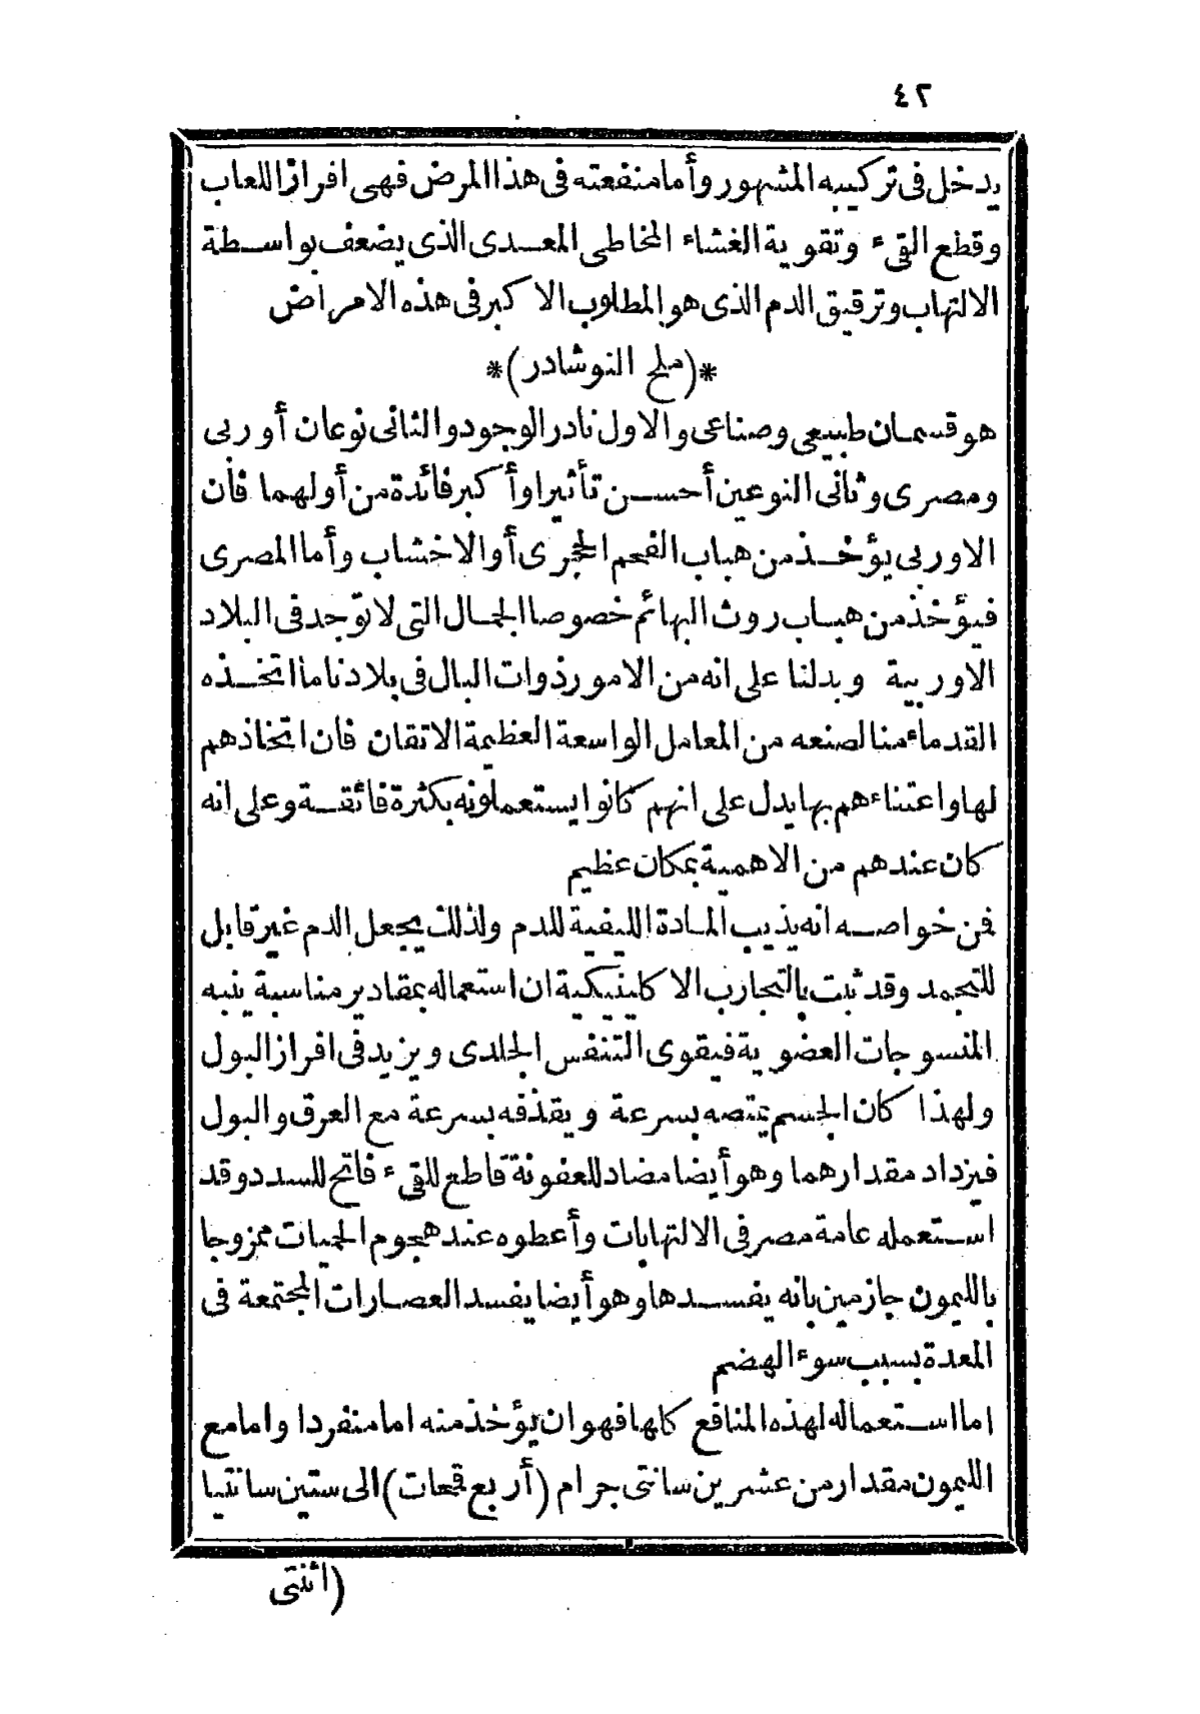 ٤٢
يدخل فى تركيبه المشهور وأما منفعته فى هذا المرض فهى افراز اللعاب
وقطع القىء وتقوية الغشاء المخاطى المعدى الذى يضعف بواسطة
الالتهاب وترقيق الدم الذى هو المطلوب الاكبر فى هذه الامراض
*(ملح النوشادر)*
هو قسمان طبيعى وصناعى والاول نادر الوجود والثانى نوعان أوربى
ومصرى وثانى النوعين أحسن تأثيرا وأكبر فائدة من أولهما فان
الاوربى يؤخذ من هباب الفحم الحجرى أو الاخشاب وأما المصرى
فيؤخذ من هباب روث البهائم خصوصا الجمال التى لا توجد فى البلاد
الاوربية ويدلنا على انه من الامور ذوات البال فى بلادنا ما اتخذه
القدماء منا لصنعه من المعامل الواسعة العظيمة الاتقان فان اتخاذهم
لها واعتناءهم بها يدل على انهم كانوا يستعملونه بكثرة فائقة وعلى انه
كان عندهم من الاهمية بمكان عظيم
فمن خواصه انه يذيب المادة الليفية للدم ولذلك يجعل الدم غير قابل
للتجمد وقد ثبت بالتجارب الاكلينيكية ان استعماله بمقادير مناسبة ينبه
المنسوجات العضوية فيقوى التنفس الجلدى ويزيد فى افراز البول
ولهذا كان الجسم يمتصه بسرعة ويقذفه بسرعة مع العرق والبول
فيزداد مقدارهما وهو أيضا مضاد للعفونة قاطع للقىء فاتح للسدد وقد
استعمله عامة مصر فى الالتهابات وأعطوه عند هجوم الحميات ممزوجا
بالليمون جازمين بانه يفسدها وهو أيضا يفسد العصارات المجتمعة فى
المعدة بسبب سوء الهضم
اما استعماله لهذه المنافع كلها فهو ان يؤخذ منه اما منفردا واما مع
الليمون مقدار من عشرين سانتى جرام (أربع قمحات) الى ستين سانتيا
(اثنتى